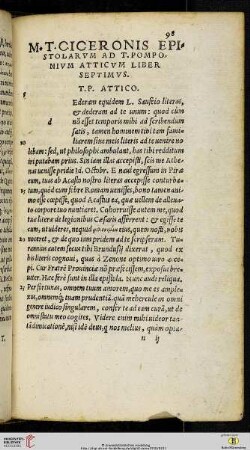 98
M. T. CICERONIS EPI
STOLARVM AD T. POMPO
NIVM ATTICVM LIBER
SEPTIMVS.
T. P. ATTICO.
5
Ederam equidem L. Saufeio literas,
& dederam ad te unum: quod cùm
d
non esset temporis mihi ad scribendum
satis, tamen hominem tibi tam
sine literis meis ad te uenire no
10
lebam: sed, ut philosophi ambulant, has tibi redditum
iri putabam prius. Sin iam illas accepisti, scis me Athe
nas uenisse pridie Id. Octobr. E naui egressum in Piræ
eum, tus ab Acasto nostro literas accepisse conturba-
15
tum, quòd cum febre Romam uenisses, bono tamen animo
esse cœpisse, quod Acastus ea, quæ uellem de alleuato
corpore tuo nuntiaret. Cohorruisse autem me, quod
tuæ literæ de legionibus Cæsaris afferrent: & egisse te
cum, ut uideres,
20
noceret, & de quo iam pridem ad te scripseram. Tur-
ranius autem secus tibi Brundusij dixerat, quod ex
his literis cognoui, quas à Xenone optimo uiro ac-
cepi. Cur Fratrem Prouinciæ non præfecissem, exposui bre
uiter. Hæc ferè sunt in illa epistola. Nunc audi reliqua.
25
Per fortunas, omnem tuum amorem, quo me es amplex-
us, omnemq; tuam prudentiam, quam mehercule in omni
genere iudico singularem, confer te ad eam curam, ut de
omni statu meo cogites. Videre enim mihi uideor tan-
tam dimicationem, nisi idem deus, qui nos melius, quàm opta-
n ij